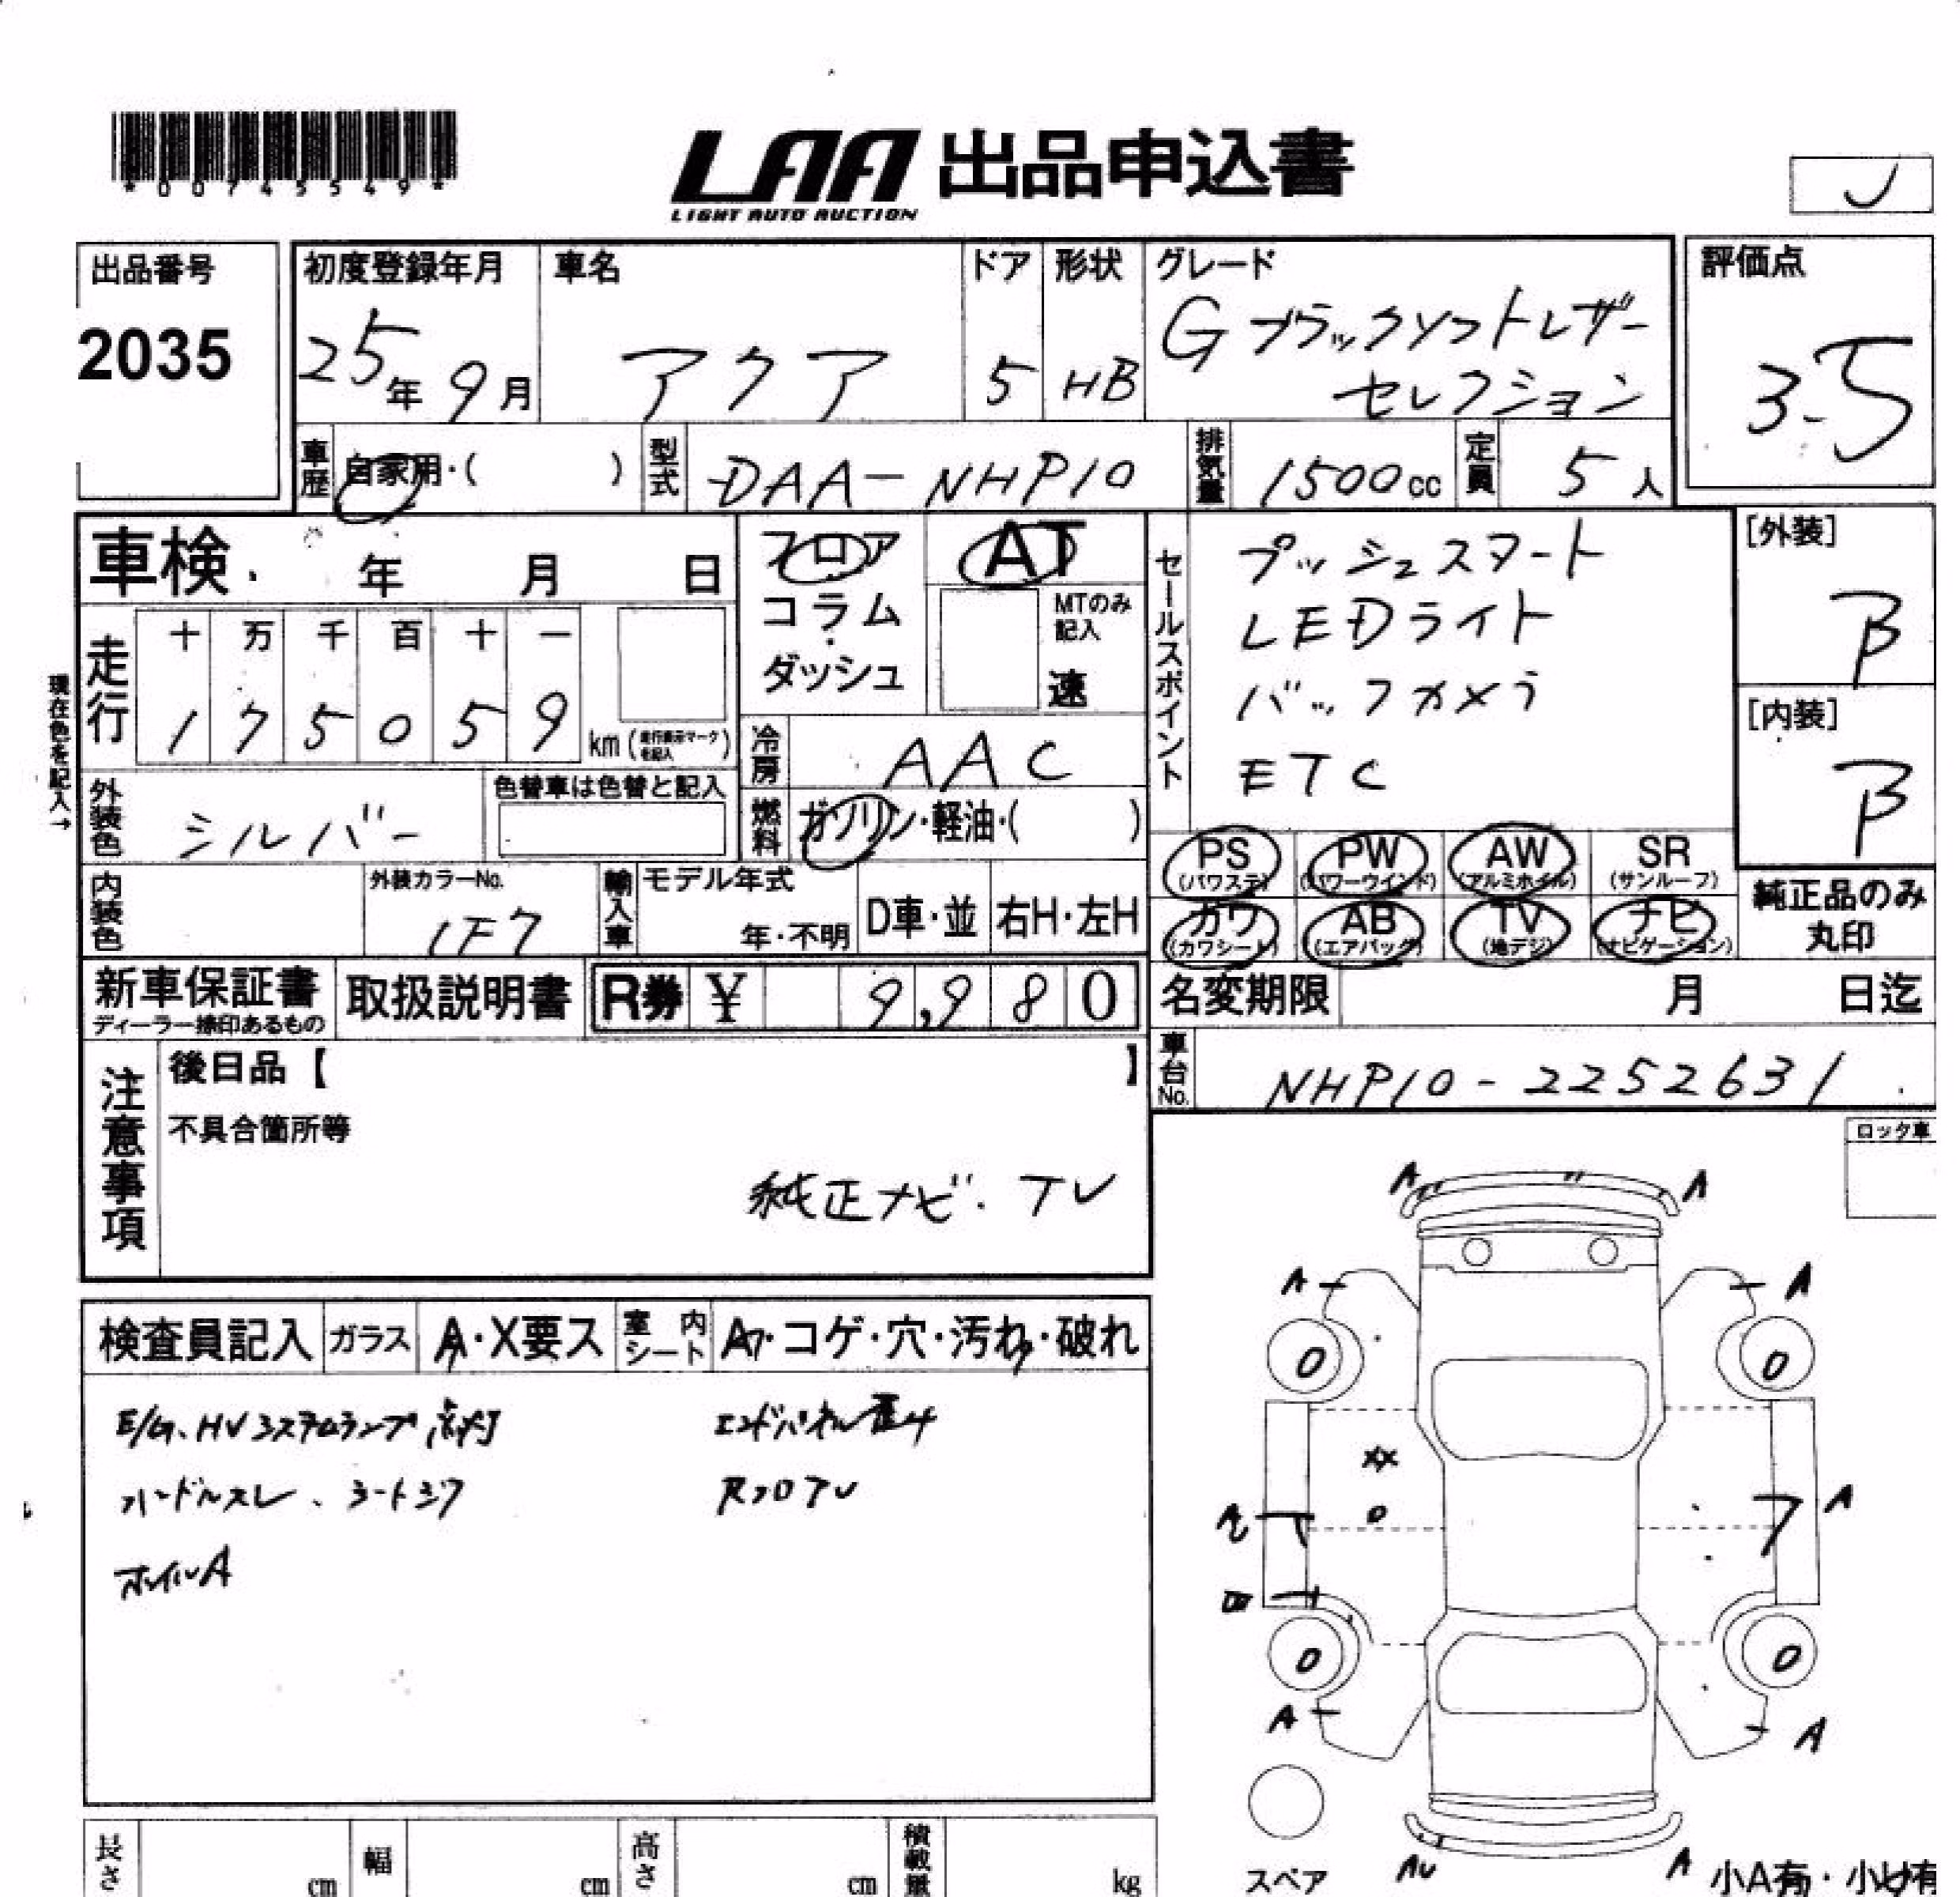 *00745549*
LAA 出品申込書
LIGHT AUTO AUCTION
J
出品番号 初度登録年月 車名 ドア 形状 グレード 評価点
2035 25年9月 アクア 5 HB Gブラックソフトレザー
セレクション
3.5
車歴 自家用・( ) 型式 DAA-NHP10 排気量 1500cc 定員 5人
車検 年 月 日 フロア AT セールスポイント プッシュスタート [外装]
コラム MTのみ記入 LEDライト B
ダッシュ 速 バックカメラ [内装]
現在色を記入→
走行 十 万 千 百 十 一
1 7 5 0 5 9 km(走行表示マークを記入)
冷房 AAC ETC B
外装色 シルバー 色替車は色替と記入 燃料 ガソリン・軽油・( )
PS PW AW SR
(パワステ) (パワーウインド) (アルミホイル) (サンルーフ)
カワ AB TV ナビ
(カワシート) (エアバッグ) (地デジ) (ナビゲーション)
純正品のみ
丸印
内装色 外装カラーNo. 1F7 輸入車 モデル年式 年・不明 D車・並 右H・左H
新車保証書 取扱説明書 R券 ¥ 9,980 名変期限 月 日迄
ディーラー捺印あるもの
車台No. NHP10-2252631
注意事項 後日品【 】
不具合箇所等
純正ナビ・TV
ロック車
検査員記入 ガラス A・X要ス 室内シート A・コゲ・穴・汚れ・破れ
E/G、HVシステムランプ点灯 エンドパネル歪み
ハンドルスレ、シートシワ RフロアU
ホイルA
A A
A A
0 0
XX
A
0 0
A A
AU A
スペア
小A有・小U有
長さ cm 幅 cm 高さ cm 積載量 kg